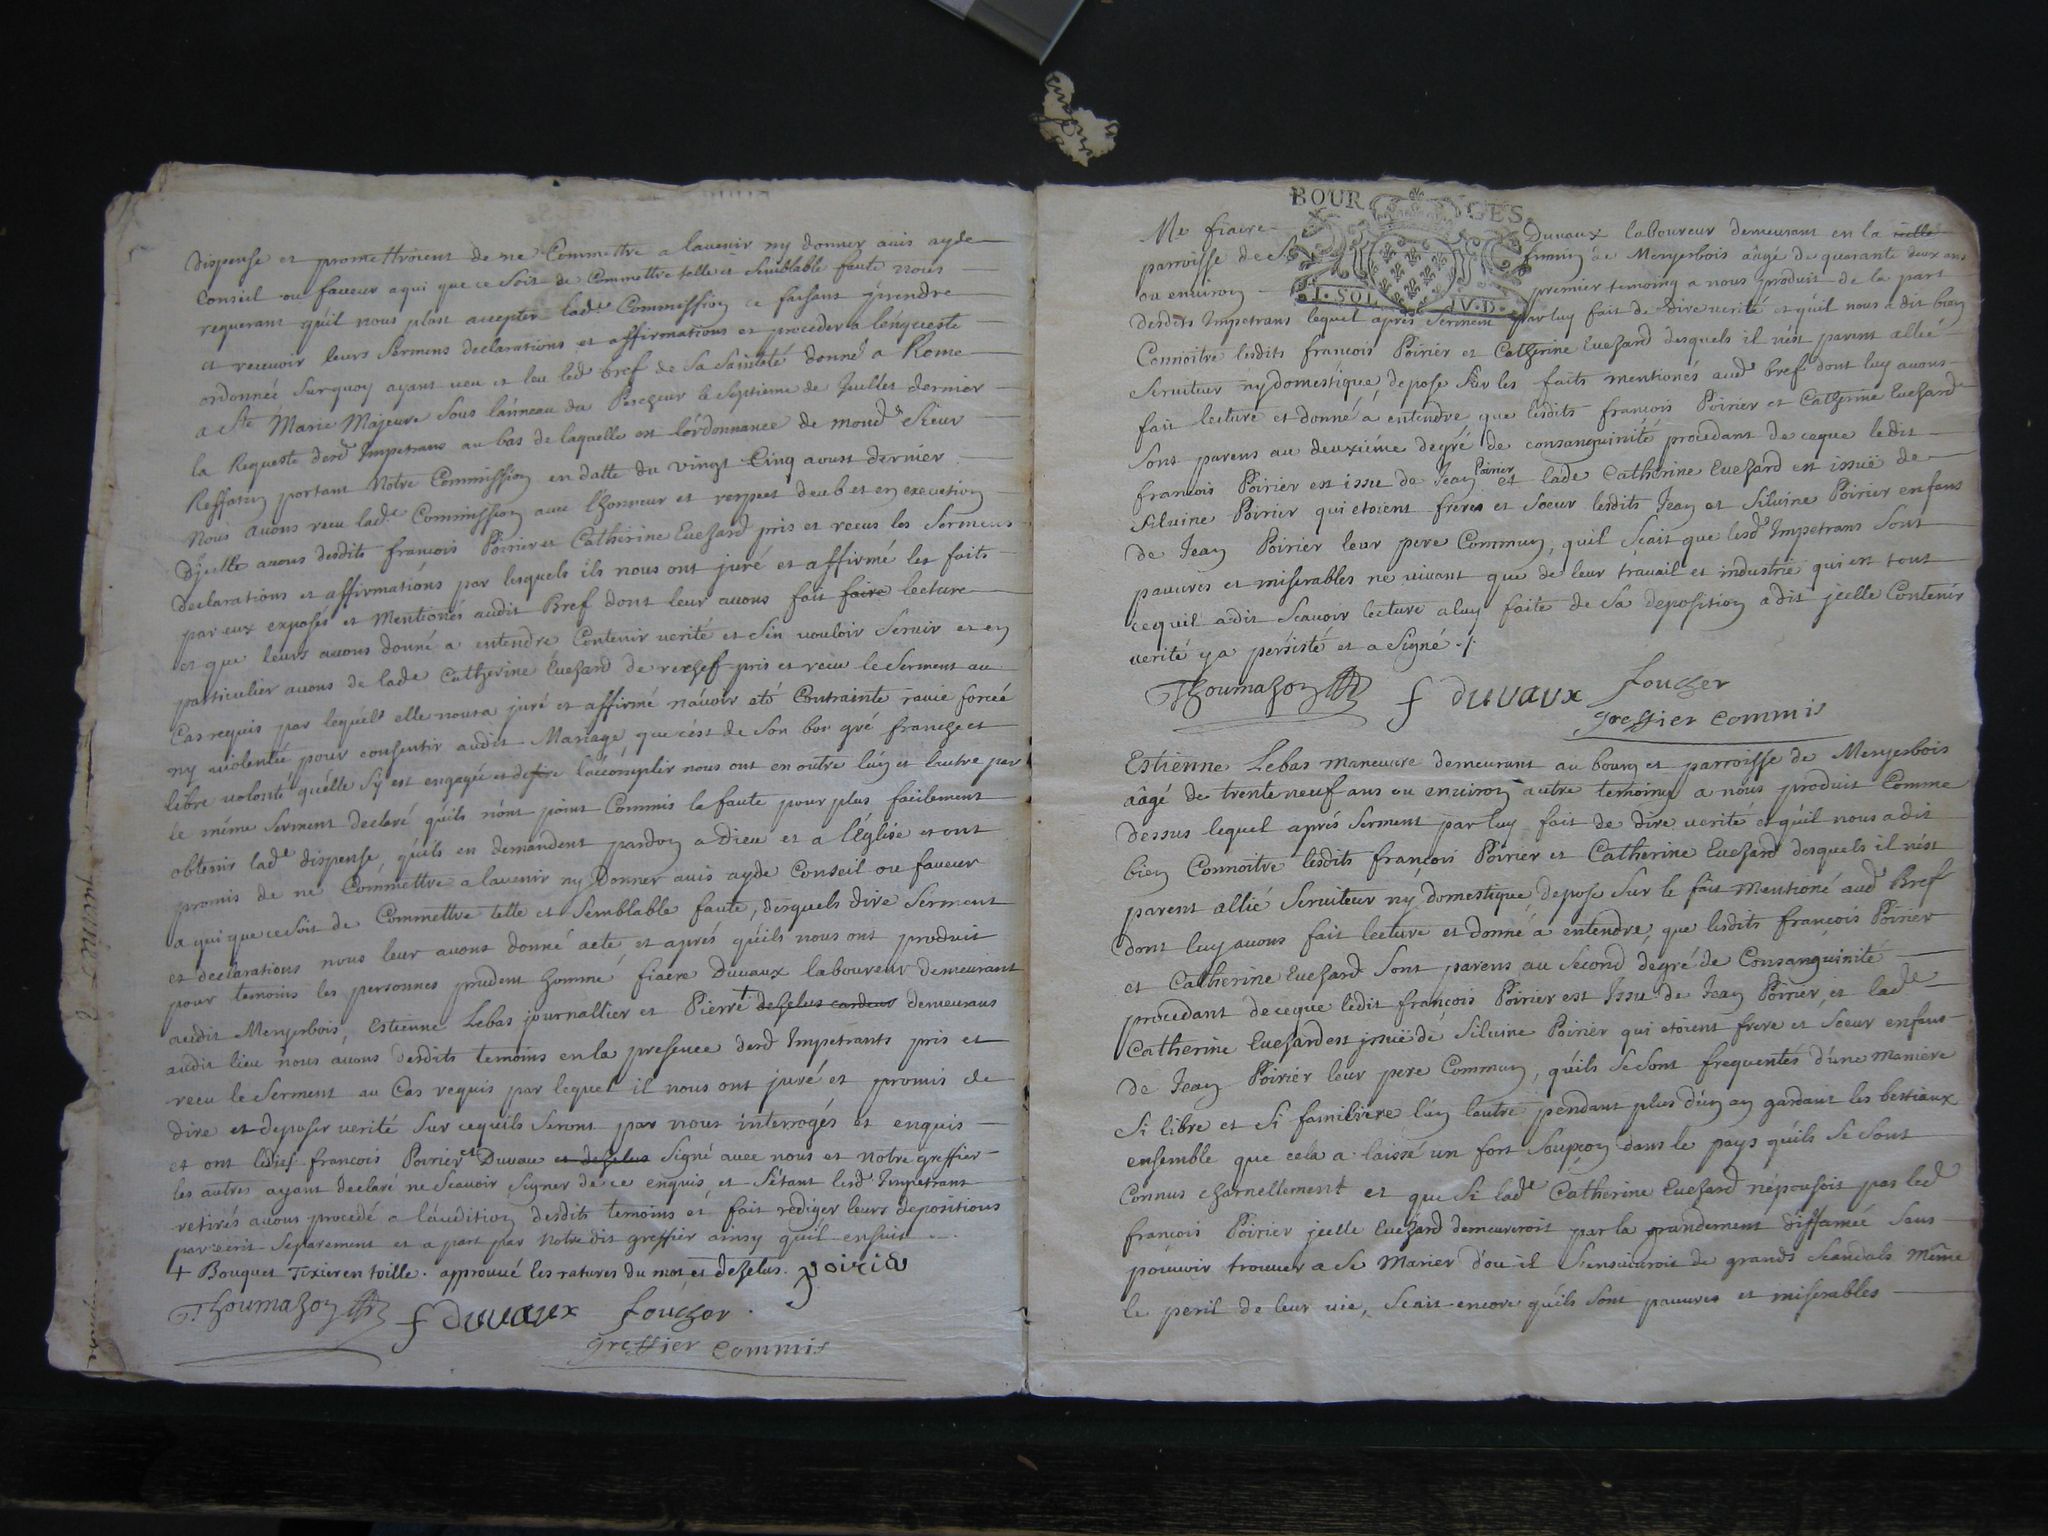 dispense et promettroient de ne Commettre a lauenir ny donner auis ayde
Conseil ou faueur a qui que ce soit de Commettre telle et Semblable faute nous
requerant quil nous plost accepter lade Commission ce faisant prendre
et receuoir leurs Sermens declarations et affirmations et proceder a lenqueste
ordonnée Surquoy ayant ueu et leu led bref de Sa Sainteté donné a Rome
a Ste Marie Majeure Sous lánneau du Pescheur le Septieme de Juillet dernier
la Requeste desd Impetrans au bas de laquelle est lórdonnance de mond Sieur
portant Notre Commission en datte du vingt Cinq aoust dernier
Nous auons receu lade Commission auec lhonneur et respect deub et en execution
Djcelle auons desdits francois Poirier et Catherine Euezard pris et receus les Sermens
declarations et affirmations par lesquels ils nous ont juré et affirmé les faits
par eux exposés et Mentionés audit Bref dont leur auons fait faire lecture
et que leurs auons donné a entendre Contenir verité et Sen vouloir Seruir et en
particulier auons de lade Catherine Euezard de rechef pris et receu le Serment au
Cas requis par lequel elle nous a juré et affirmé náuoir eté Contrainte rauie forcée
ny uiolentée pour consentir audit Mariage, que cést de Son bon gré franche et
libre uolonté quélle Sý est engagée et desire láccomplir nous ont en outre lún et lautre par
le même Serment declaré quils nónt point Commis la faute pour plus facilement
obtenir lade dispense, quils en demandent pardon a Dieu et a lÉglise et ont
promis de ne Commettre a lauenir ny Donner auis ayde Conseil ou faueur
a qui que ce soit de Commettre telle et Semblable faute, desquels dire Serment
et declarations nous leur auons donné acte et aprés quils nous ont produit
pour temoins les personnes prudent homme fiacre Duuaux laboureur demeurant
audit Menjerbois, Estienne Lebas journallier et Pierre + deselus cardeur demeurans
audit lieu nous auons desdits temoins en la presence desd Impetrants pris et
receu le Serment au Cas requis par lequel il nous ont juré et promis de
dire et deposer verité Sur cequils Seront par nous interrogés et enquis
et ont ledits francois Poirier et Duuau et deselus Signé auec nous et Notre greffier
les autres ayant declaré ne Scauoir Signer de ce enquis, et Sétant lesd Impetrans
retirés auons procedé a láudition desdits temoins et fait rediger leurs depositions
par écrit Séparement et a part par Notre dit greffier ainsy quil ensuit
+ Bouquet Tixier en toille. approuué les ratures du mot et deselus. poirier
Thoumazon f duuaux foucher
greffier commis
BOURGES
Me fiacre Duuaux laboureur demeurant en la uille
parroisse de St firmin de Menjerbois âagé de quarante deux ans
ou enuiron premier temoing a nous produit de la part
I. SOL IV. D.
desdits Impetrans lequel aprés Serment par luy fait de dire uerité et quil nous a dit bien
Connoitre lesdits francois Poirier et Catherine Euezard desquels il nést parent allié
Seruiteur ny domestique, depose Sur les faits mentionés aud bref dont luy auons
fait lecture et donné á entendre que lesdits francois Poirier et Catherine Euezard
Sont parens au deuxiéme degré de consanguinité procedant de ceque ledit
francois Poirier est issu de Jean Poirier et lade Catherine Euezard est issuë de
Siluine Poirier qui etoient freres et Soeur lesdits Jean et Siluine Poirier enfans
de Jean Poirier leur pere Commun, quil Scait que lesd Impetrans Sont
pauures et miserables ne uiuant que de leur trauail et industrie qui est tout
cequil a dit Scauoir lecture a luy faite de Sa deposition a dit jcelle Contenir
uerité y a persisté et a Signé ./.
Thoumazon f duuaux foucher
greffier commis
Estienne Lebas maneuure demeurant au bourg et parroisse de Menjerbois
âagé de trente neuf ans ou enuiron autre temoing a nous produit Comme
dessus lequel aprés Serment par luy fait de dire uerité et quil nous a dit
bien Connoitre lesdits francois Poirier et Catherine Euezard desquels il nést
parent allié Seruiteur ny domestique, depose Sur le fait Mentioné aud Bref
dont luy auons fait lecture et donné á entendre, que lesdits francois Poirier
et Catherine Euezard Sont parens au Second degré de Consanguinité
procedant de ceque ledit francois Poirier est Issu de Jean Poirier, et lade
Catherine Euezard est jssuë de Siluine Poirier qui etoient frere et Soeur enfans
de Jean Poirier leur pere Commun, quils Se Sont frequentés d'une maniere
Si libre et Si familiere lún lautre pendant plus d'un an gardant les bestiaux
ensemble que cela a laissé un fort Soupcon dans le pays quils Se Sont
Connus charnellement et que Si lade Catherine Euezard népousoit pas led
francois Poirier jcelle Euezard demeureroit par la grandement diffamée Sans
pouuoir trouuer a Se Marier dóu il Sensuiuroit de grands Scandals même
le peril de leur uie, Scait encore quils Sont pauures et miserables